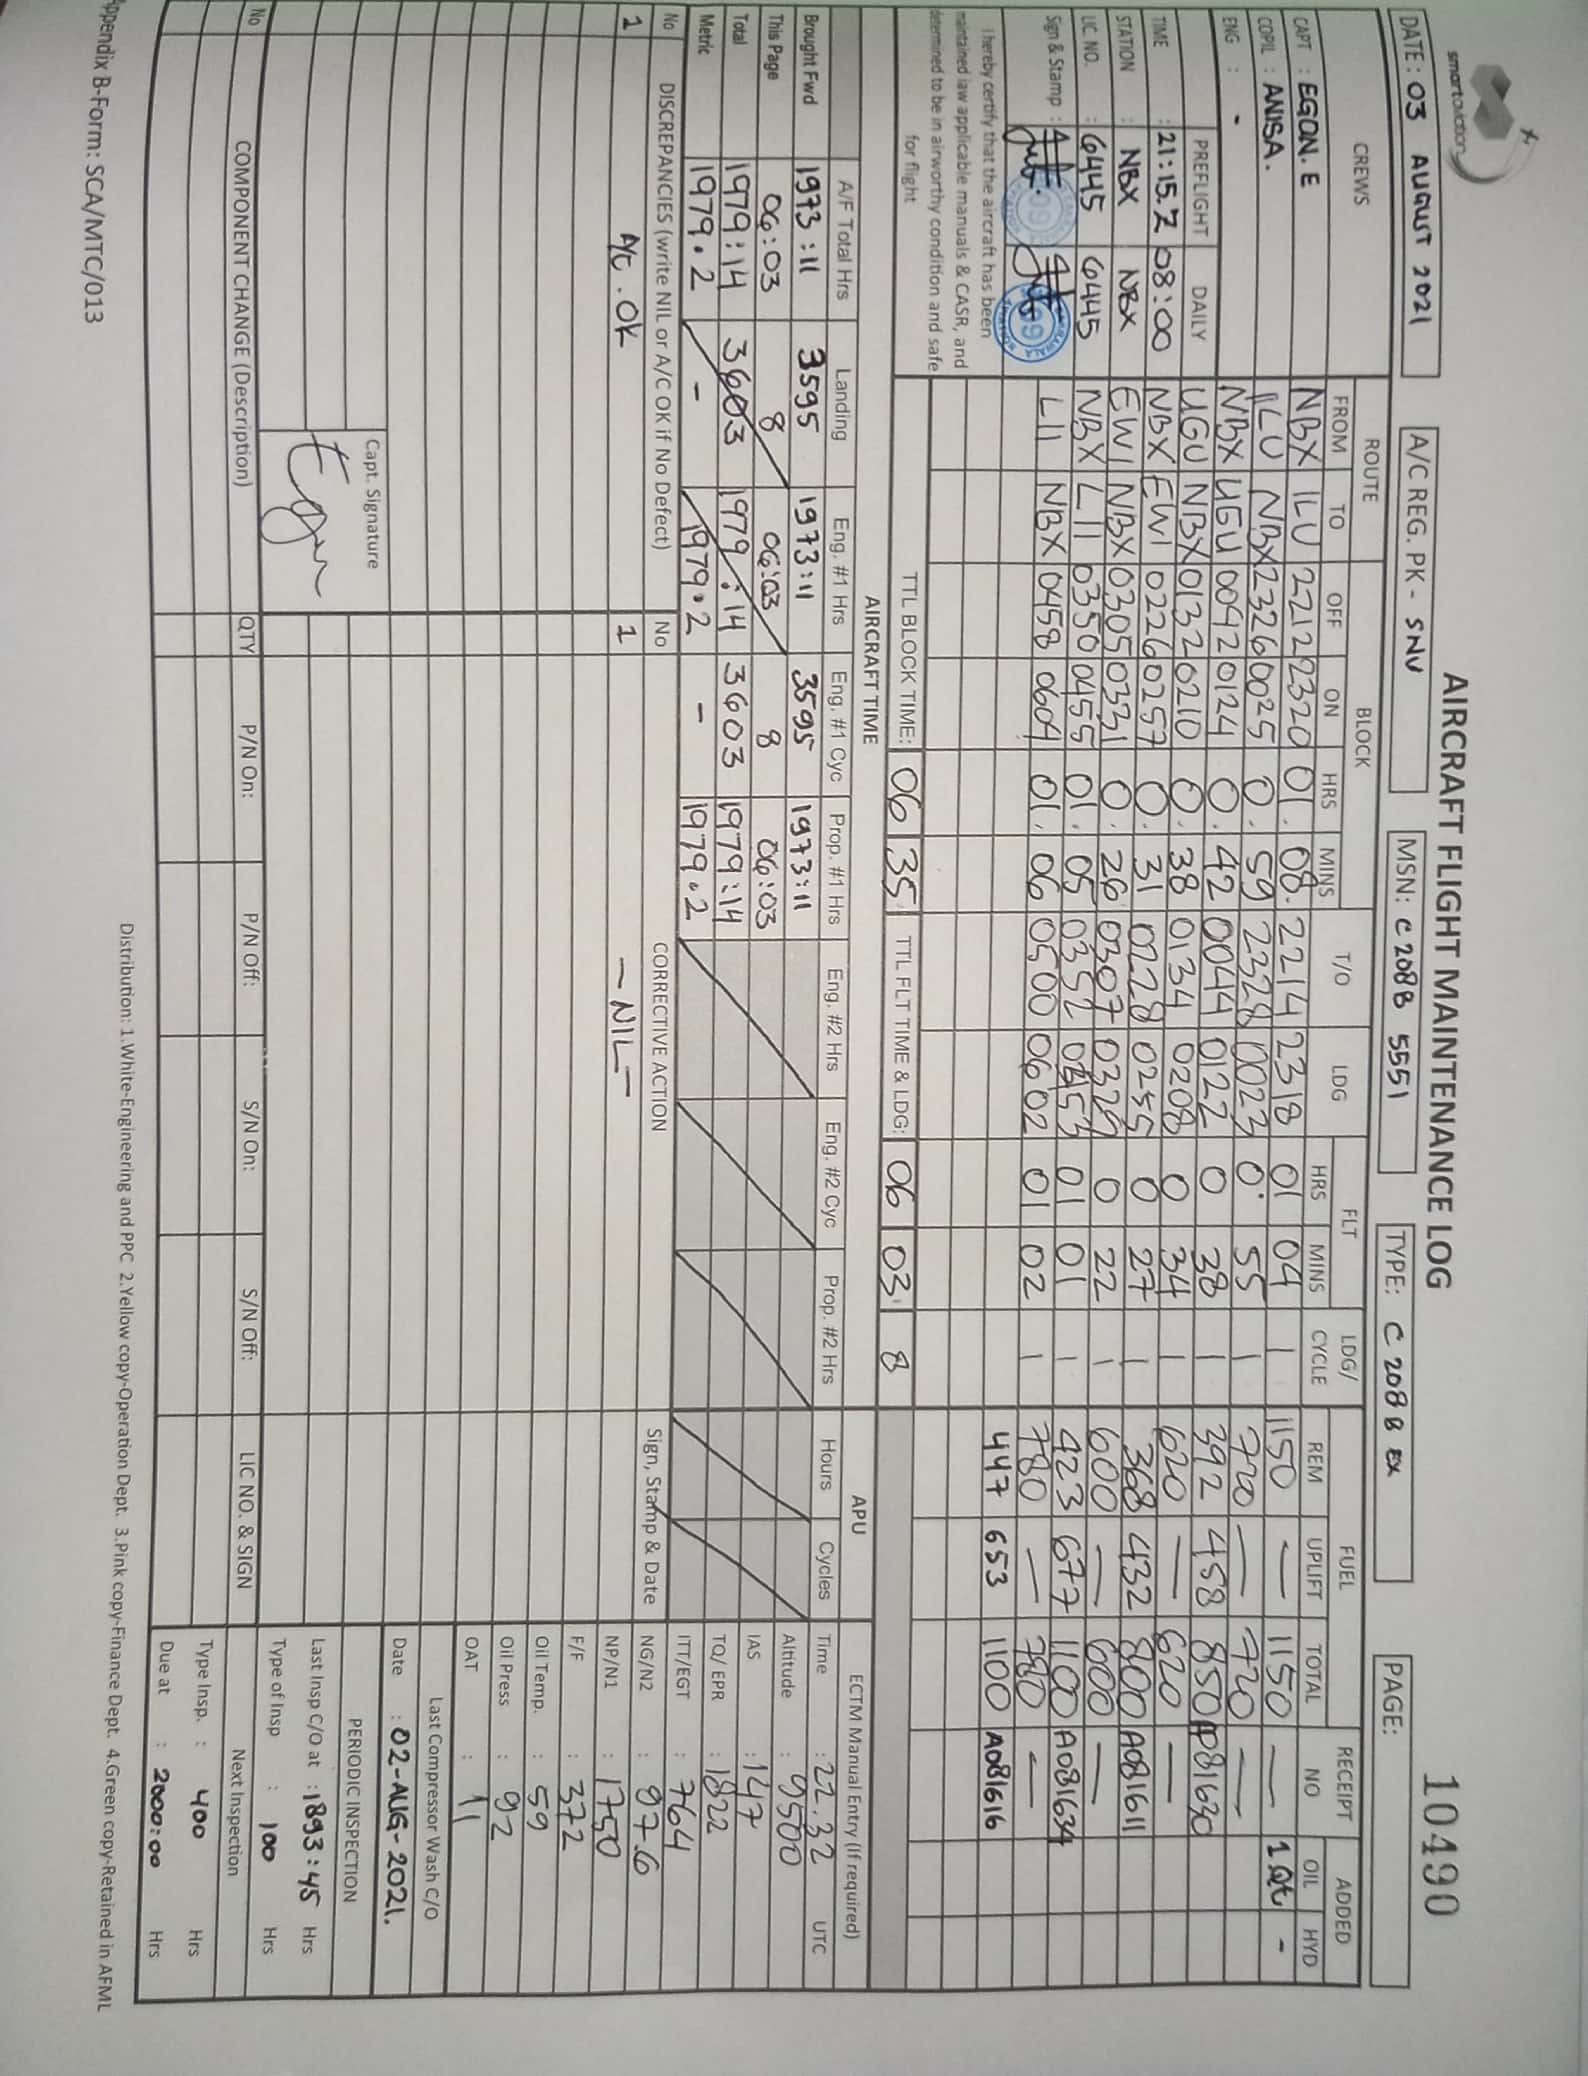 smartaviation
AIRCRAFT FLIGHT MAINTENANCE LOG
10490
DATE : 03 AUGUST 2021
A/C REG. PK - SNV
MSN: C208B 5551
TYPE: C 208 B EX
PAGE:
CREWS ROUTE BLOCK T/O LDG FLT LDG/ CYCLE FUEL RECEIPT NO ADDED
FROM TO OFF ON HRS MINS HRS MINS REM UPLIFT TOTAL OIL HYD
CAPT : EGON. E
COPIL : ANISA.
ENG : -
NBX ILU 2212 2320 01. 08. 2214 2318 01 04 1 1150 — 1150 — 1 Qt -
ILU NBX 2326 0025 0. 59 2328 0023 0. 55 1 720 — 720 —
NBX UGU 0042 0124 0. 42 0044 0122 0 38 1 392 458 850 A081630
UGU NBX 0132 0210 0. 38 0134 0208 0 34 1 620 — 620 —
NBX EWI 0226 0257 0. 31 0228 0255 0 27 1 368 432 800 A081611
EWI NBX 0305 0331 0. 26 0307 0329 0 22 1 600 — 600 —
NBX LII 0350 0455 01. 05 0352 0453 01 01 1 423 677 1100 A081634
LII NBX 0458 0604 01. 06 0500 0602 01 02 1 780 — 780 —
447 653 1100 A081616
PREFLIGHT DAILY
TIME : 21:15.Z 08:00
STATION : NBX NBX
LIC NO. : 6445 6445
Sign & Stamp :
I hereby certify that the aircraft has been
maintained law applicable manuals & CASR, and
determined to be in airworthy condition and safe
for flight
TTL BLOCK TIME: 06 35
TTL FLT TIME & LDG: 06 03 8
AIRCRAFT TIME
APU
A/F Total Hrs Landing Eng. #1 Hrs Eng. #1 Cyc Prop. #1 Hrs Eng. #2 Hrs Eng. #2 Cyc Prop. #2 Hrs Hours Cycles
Brought Fwd 1973:11 3595 1973:11 3595 1973:11
This Page 06:03 8 06:03 8 06:03
Total 1979:14 3603 1979:14 3603 1979:14
Metric 1979.2 - 1979.2 - 1979.2
No DISCREPANCIES (write NIL or A/C OK if No Defect) No CORRECTIVE ACTION Sign, Stamp & Date
1 A/C . OK 1 — NIL —
Capt. Signature
Egon
ECTM Manual Entry (If required)
Time : 22.32 UTC
Altitude : 9500
IAS : 147
TQ/ EPR : 1822
ITT/EGT : 764
NG/N2 : 97.6
NP/N1 : 1750
F/F : 372
Oil Temp. : 59
Oil Press : 92
OAT : 11
Last Compressor Wash C/O
Date : 02-AUG-2021.
PERIODIC INSPECTION
Last Insp C/O at : 1893:45 Hrs
Type of Insp : 100 Hrs
Next Inspection
Type Insp. : 400 Hrs
Due at : 2000:00 Hrs
No COMPONENT CHANGE (Description) QTY P/N On: P/N Off: S/N On: S/N Off: LIC NO. & SIGN
Distribution: 1.White-Engineering and PPC 2.Yellow copy-Operation Dept. 3.Pink copy-Finance Dept. 4.Green copy-Retained in AFML
ppendix B-Form: SCA/MTC/013